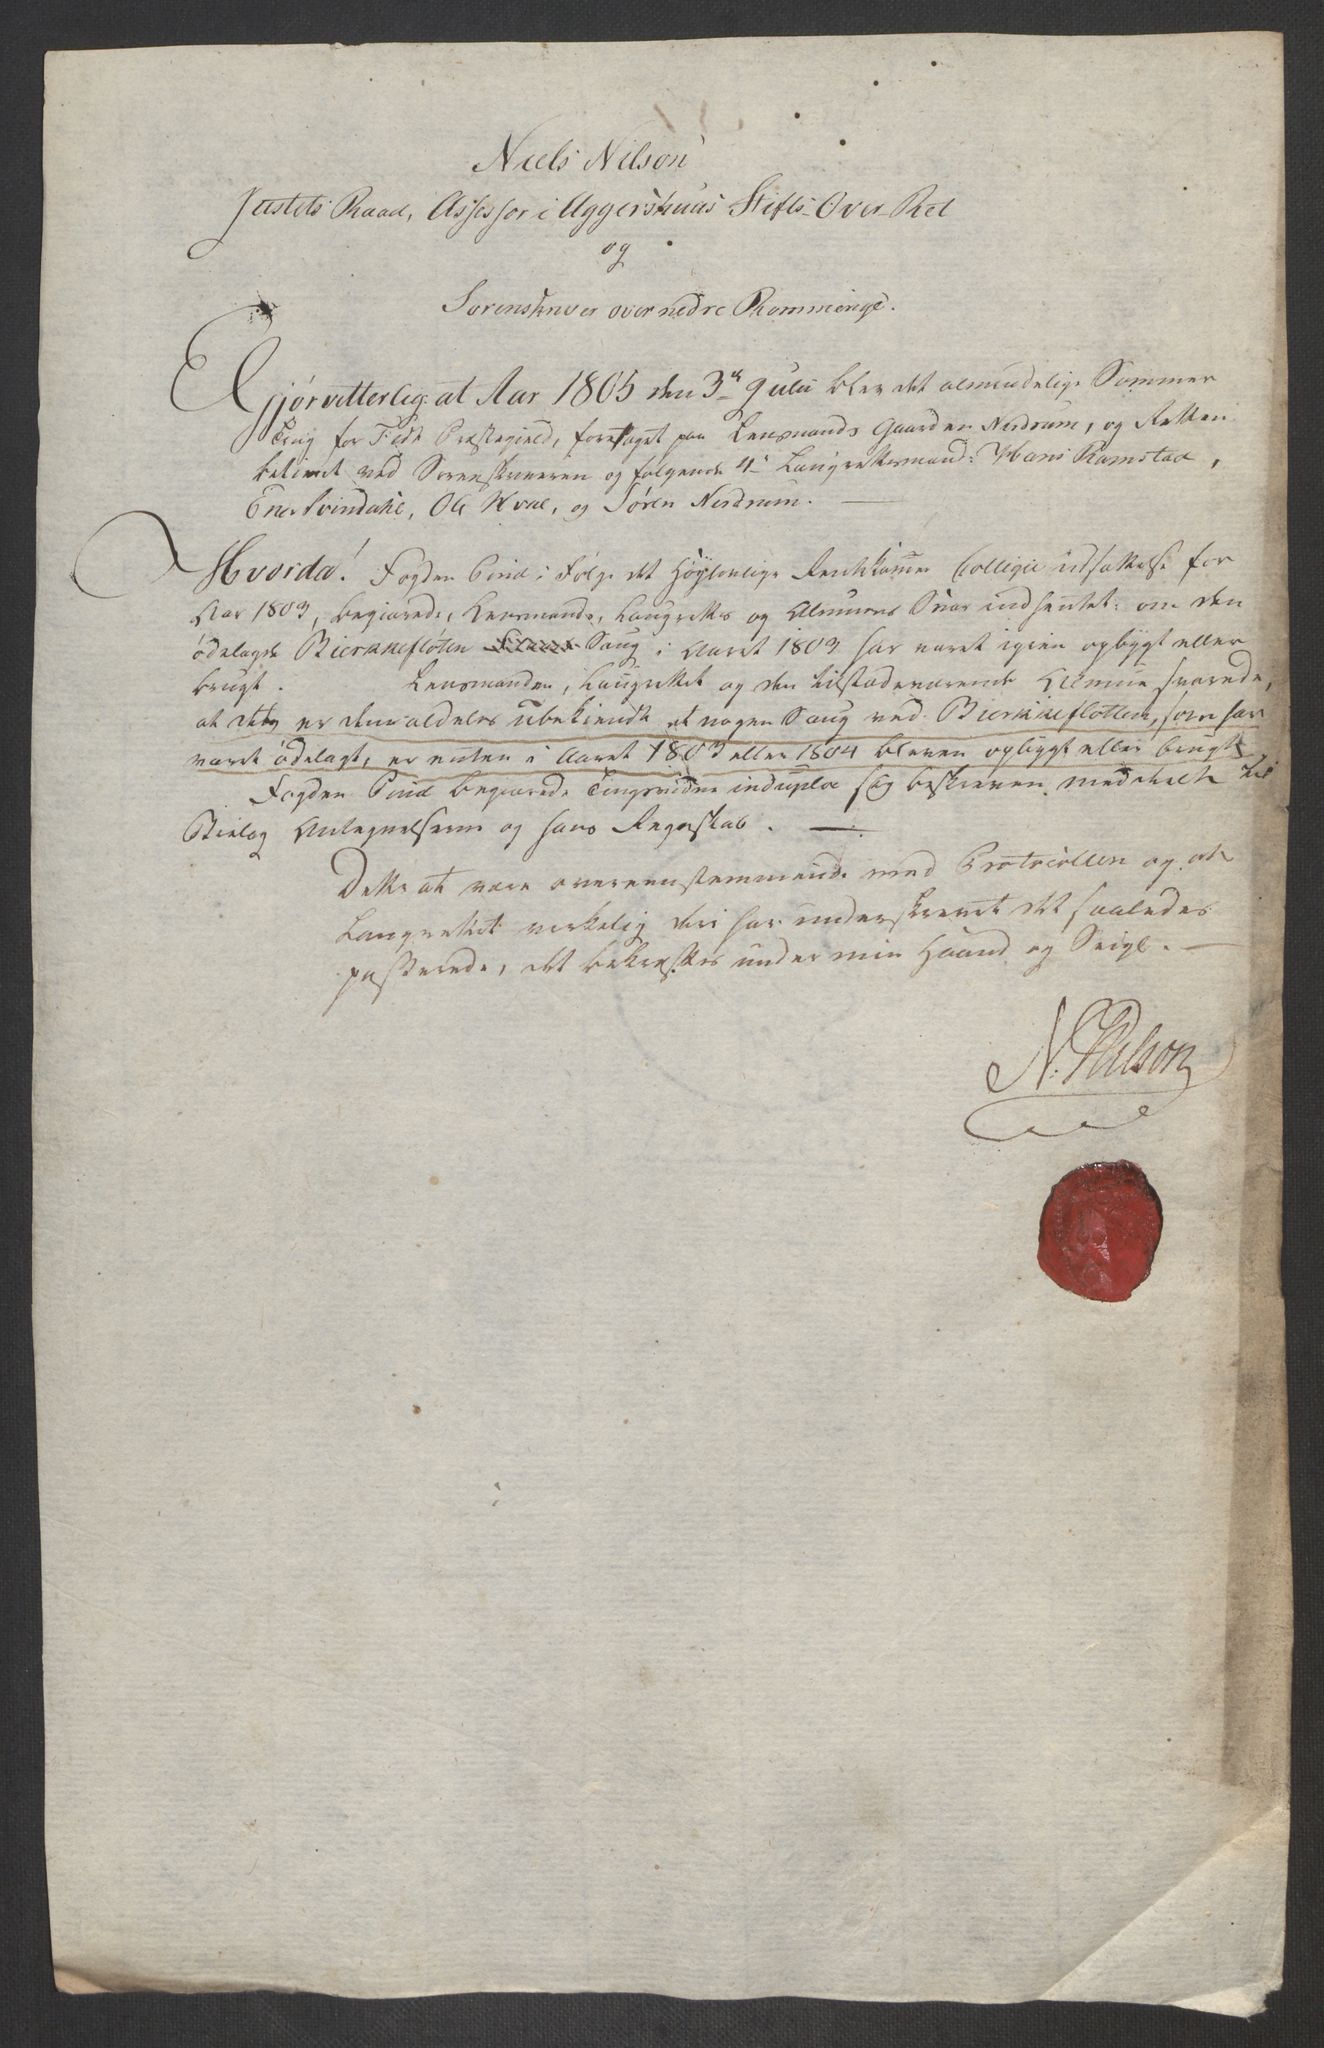 Niels Nilson
Justits Raad, Assessor i Aggershuus Stifts-Over-Ret
og
Sorenskriver over nedre Rommerige.
Gjør vitterlig: at Aar 1805 den 3de Julii blev det almindelige Sommer
Ting for Fedt Præstegield, foretaget paa Lensmands Gaarden Nerdrum, og Retten
betient ved Sorenskriveren og følgende 4re Laugrettesmænd: Hans Ramstad,
Ener Svindahl, Ole Hval, og Søren Nerdrum. —
Hvorda! Fogden Pind i Følge det Høylovlige Rentekammer Collegii udsættelse for
Aar 1803, begierede, Lensmands, Laugrettes og Almues Svar indhentet: om den
ødelagde Bierkefloten Saug i Aaret 1803 har været igien opbygt eller
brugt. Lensmanden, Laugrettet og den tilstædeværende Almue svarede,
at det er dem aldeles ubekiendt at nogen Saug ved Bierkeflotten, som har
været ødelagt, er enten i Aaret 1803 eller 1804 bleven opbygt eller brugt.
Fogden Pind begierede Tingsvidne in duplo sig beskreven meddeelt til
Bielag Antegnelserne og hans Regnskab. —
Dette at være overeensstemmende med Protocollen og at
Laugrettet virkelig deri har underskrevet det saaledes
passerede, det bekræftes under min Haand og Seigl. —
N. Nilson